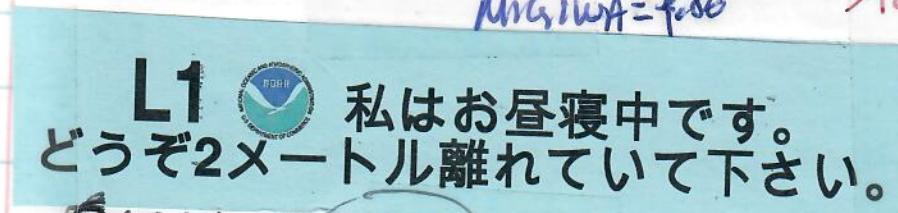 L1 私はお昼寝中です。
どうぞ2メートル離れていて下さい。